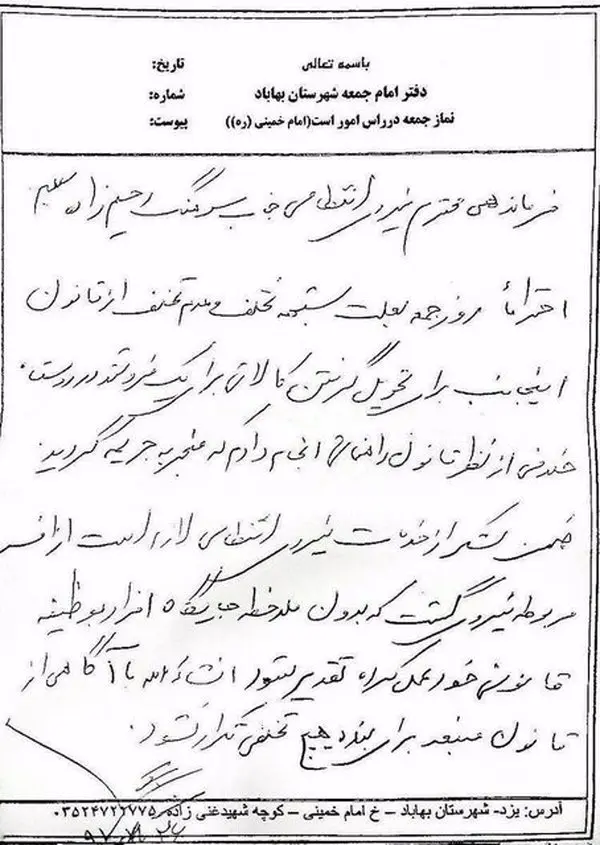 باسمه تعالی
تاریخ:
دفتر امام جمعه شهرستان بهاباد
شماره:
نماز جمعه درراس امور است(امام خمینی (ره))
پیوست:
فرماندهی محترم نیروی انتظامی جناب سرهنگ رحیم زاده
احتراماً روز جمعه بعلت تخلف و عدم تخلف از قانون
اینجانب برای تحویل گرفتن کالائی برای یک فروشنده در روستا
خلافی از نظر قانون راهنمائی انجام دادم که منجر به جریمه گردید
ضمن تشکر از خدمات نیروی انتظامی لازم است از افسر
مربوطه نیروی گشت که بدون ملاحظه جایگاه افراد بوظیفه
قانونی خود عمل کرده تقدیر بشود انشاءالله با آگاهی از
قانون منبعد برای بنده هیچ تخلفی تکرار نشود.
آدرس: یزد- شهرستان بهاباد – خ امام خمینی – کوچه شهیدغنی زاده ۰۳۵۲۴۷۲۲۷۷۵